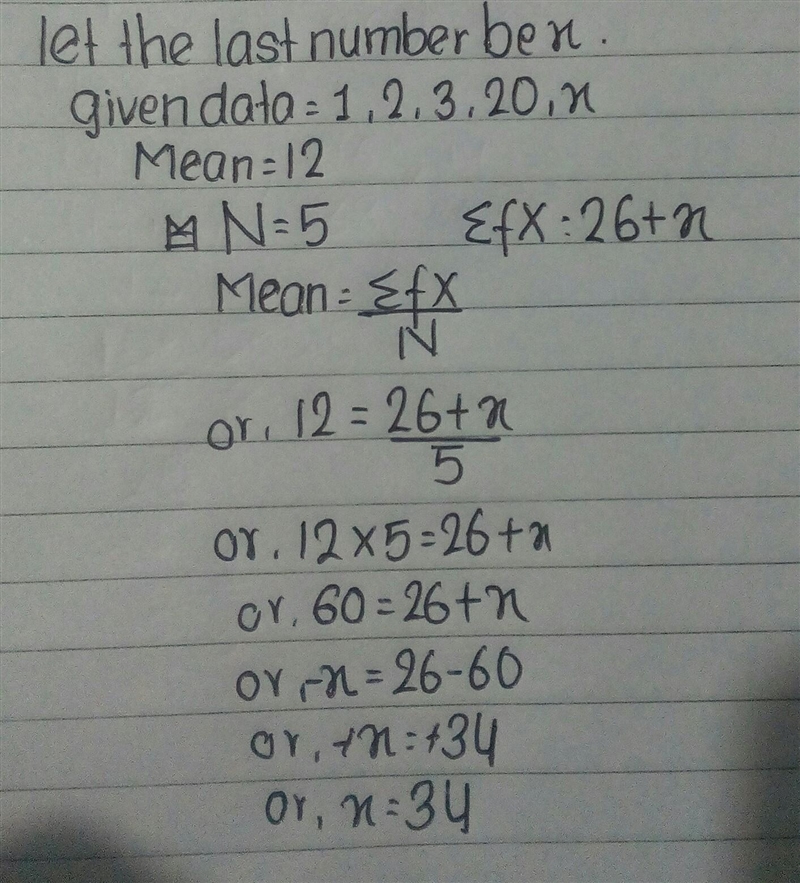 let the last number be x.
given data = 1, 2, 3, 20, x
Mean = 12
N = 5 ΣfX : 26 + x
Mean = ΣfX
N
or, 12 = 26 + x
5
or, 12 × 5 = 26 + x
or, 60 = 26 + x
or, -x = 26 - 60
or, +x = +34
or, x = 34